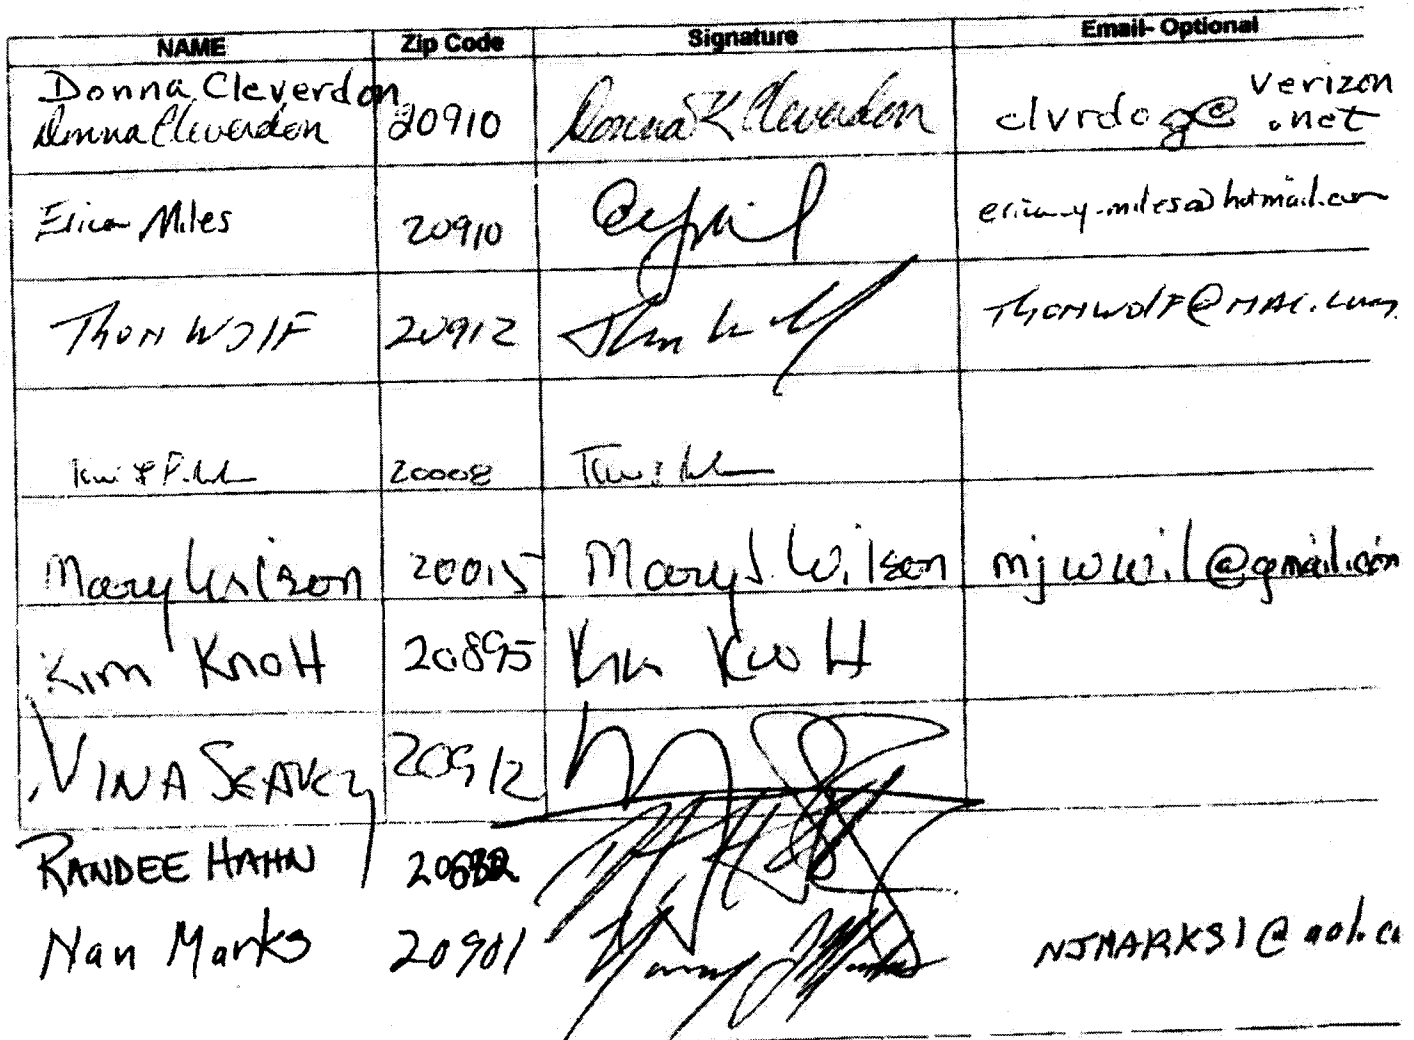 NAME Zip Code Signature Email- Optional
Donna Cleverdon verizon
Donna Cleverdon 20910 Donna K Cleverdon clvrdog@ .net
Erica Miles 20910 erica-y-miles@hotmail.com
Thon Wolf 20912 Thon Wolf ThonWolf@MAC.com
20008
Mary Wilson 20015 Mary J. Wilson mjwwil@gmail.com
Kim Knott 20895 Kim Knott
VINA SEAVEY 20912
RANDEE HAHN
Nan Marks 20901 NJMARKS1@aol.co